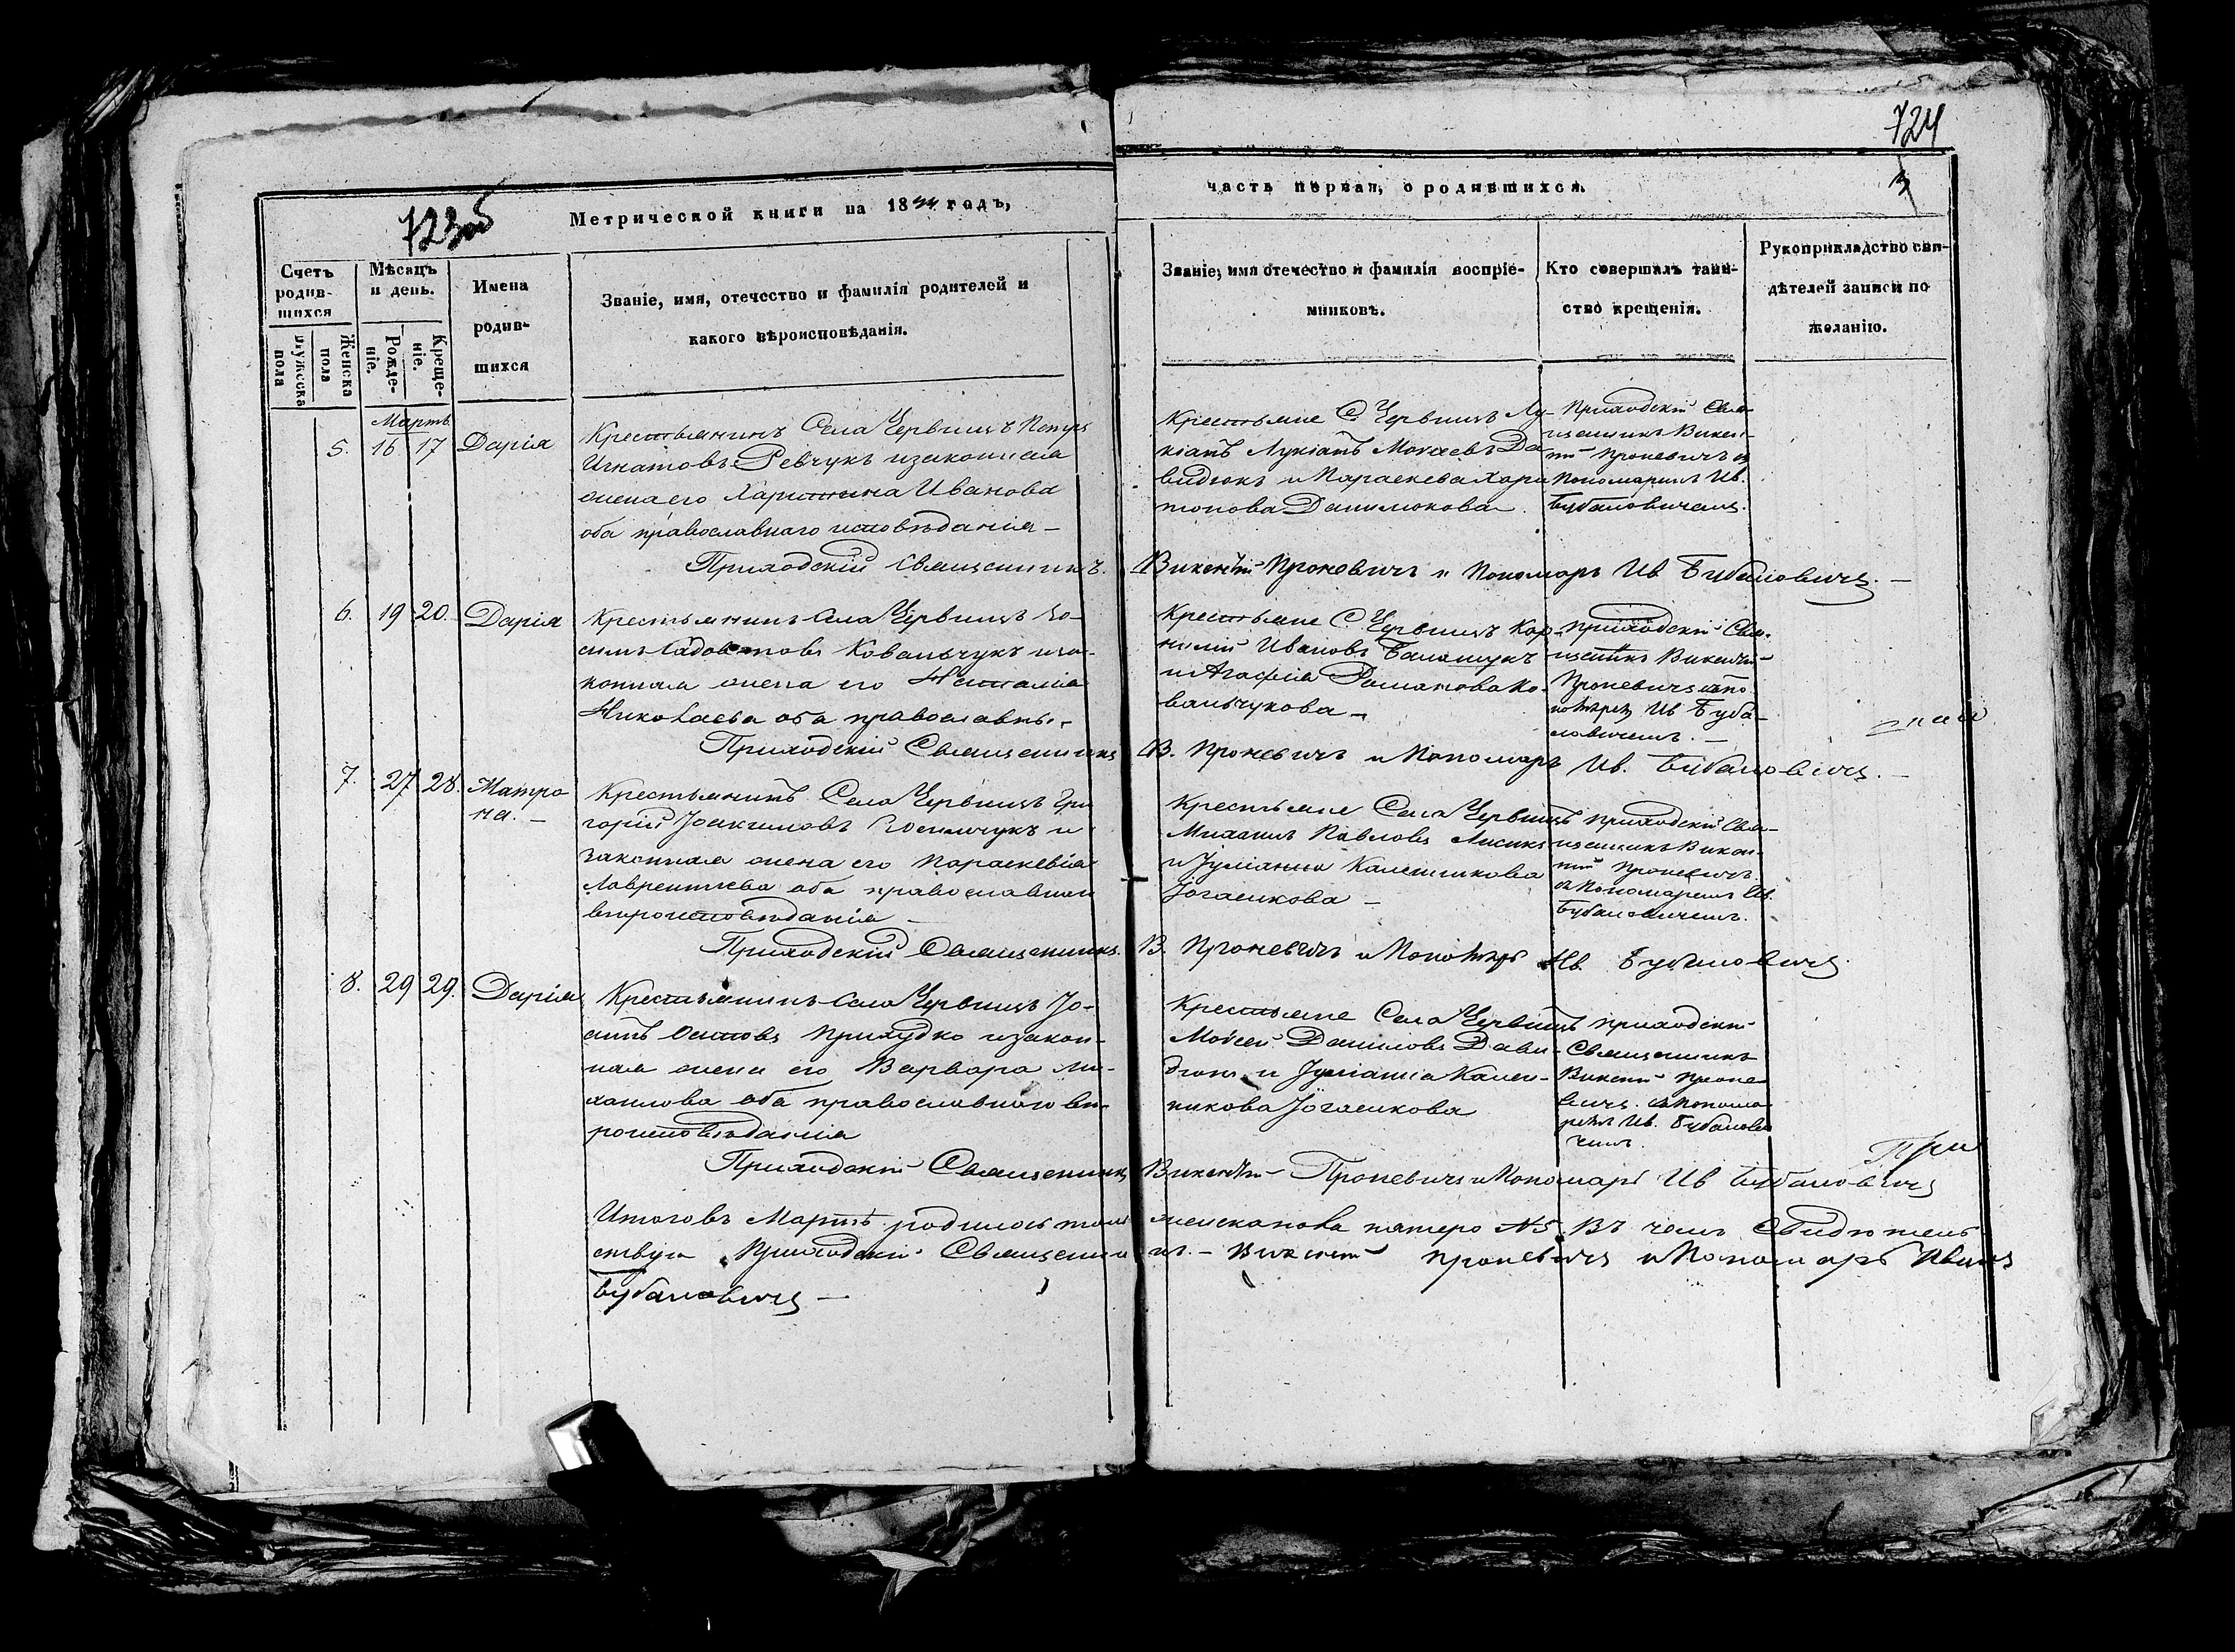 724
723об
3
Метрической книги на 1844 годъ,
часть первая, о родившихся.
Счетъ родив-шихся
Мѣсяцъ и день.
Имена родив-шихся
Званіе, имя, отечество и фамилія родителей и
какого вѣроисповѣданія.
Званіе, имя отечество и фамилія воспріе-
мниковъ.
Кто совершалъ таин-
ство крещенія.
Рукоприкладство сви-
дѣтелей записи по
желанію.
мужеска пола
Женска пола
Рожде-ніе.
Креще-ніе.
Мартъ
5. 16 17 Дарія
Крестьянинъ Села Червищъ Петръ
Игнатовъ Ревчукъ изаконная
жена его Харитина Иванова
оба православнаго исповѣданія –
Крестьяне С Червищъ Лу-
кіанъ Лукіанъ Моѵсеевъ Да
видюкъ и Параскева Хари
тонова Данилюкова
Приходскій Свя-
щенникъ Викен-
тій Проневичъ съ
Пономаремъ Ив.
Бубановичемъ.
Приходскій Священникъ. Викентій Проневичъ и Пономарь Ив Бубановичъ. –
6. 19 20. Дарія
Крестьянинъ Села Червищъ Зо-
симъ Ковальчукъ иза-
конная жена его Наталія
Николаева оба православны. –
Крестьяне С Червищъ Кор-
нилій Ивановъ Баланчукъ
и Агафія Романова Ко-
вальчукова –
Приходскій Свя-
щеникъ Викентій
Проневичъ спо
номарем Ив Буба-
новичемъ. –
Приходскій Священникъ В. Проневичъ и Пономарь Ив. Бубановичъ. –
7. 27 28. Матро
на. –
Крестьянинъ Села Червищъ Гри
горій Іоакимовъ и
законная жена его Параскевіа
Лаврентіева оба православнаго
вѣроисповѣданія –
Крестьяне Села Червищъ
Михаилъ Павловъ Лисикъ
и Іуліанна Каленикова
Іогасикова –
приходскій Свя-
щенникъ Викен-
тій Проневичъ
съ Пономаремъ Ив.
Бубановичемъ.
Приходскій Священникъ. В. Проневичъ и Пономарь Ив. Бубановичъ.
8. 29 29. Дарія
Крестьянинъ Села Червищъ Іо-
сифъ Осиповъ Прихудко изакон-
ная жена его Варвара Ми-
хаилова оба православнаго вѣ-
роисповѣданія
Крестьяне Села Червищъ
Моѵсей Даниловъ Дави-
дюкъ и Іуліанна Кален-
никова Іогасикова
приходскій
Священникъ
Викентій Проне-
вичъ съ Понома-
ремъ Ив. Бубанови
чемъ.
Приходскій Священникъ Викентій Проневичъ и Пономарь Ив Бубановичъ
При
Итого въ Мартѣ родилось женска пола пятеро №5 Въ чемъ Свидѣтель
ствуя Приходскій Священникъ. – Викентій Проневичъ и Пономарь Иванъ
Бубановичъ –